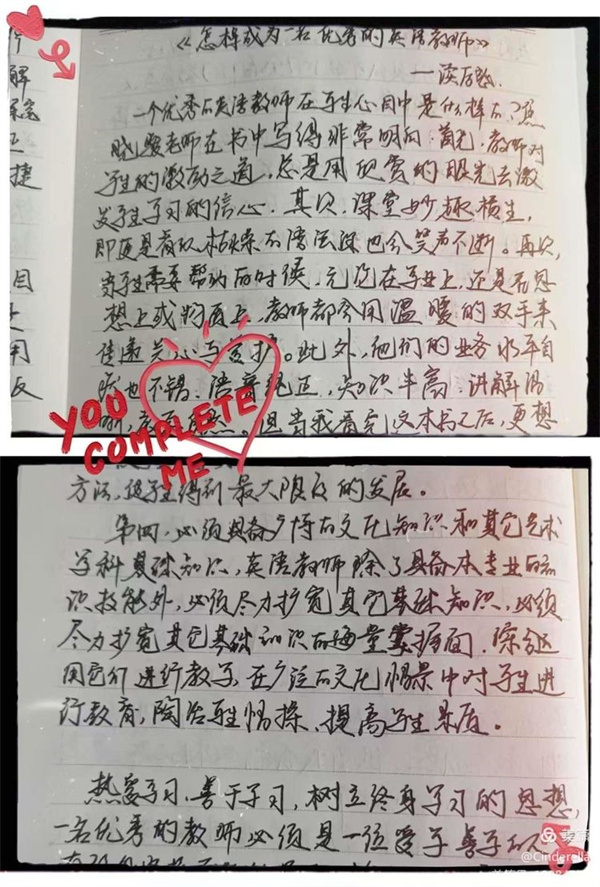 解
正
捷
目
用
反
《怎样成为一名优秀的英语教师》
一读后感.
一个优秀的英语教师在学生心目中是什么样的?焦
晓骏老师在书中写得非常明白:首先,教师对
学生的激励之道,总是用欣赏的眼光去激
发学生学习的信心。其次,课堂妙趣横生,
即便是看似枯燥的语法课也会笑声不断。再次,
当学生需要帮助的时候,无论在学业上,还是在思
想上或物质上,教师都会用温暖的双手来
传递关心与支持。此外,他们的业务水平自
然也不错,语音纯正,知识丰富,讲解清
但当我看完这本书之后,更想
YOU
COMPLETE
ME
方法,使学生得到最大限度的发展。
第四,必须具备广博的文化知识和其它艺术
学科基础知识,英语教师除了具备本专业的知
识技能外,必须尽力扩宽其它基础知识,必须
尽力扩宽其它基础知识的海量掌握面,深
用它们进行教学,在广泛的文化情景中对学生进
行教育,陶冶学生情操、提高学生素质。
热爱学习,善于学习,树立终身学习的思想,
一名优秀的教师必须是一位爱学善学的人
@Cinderella